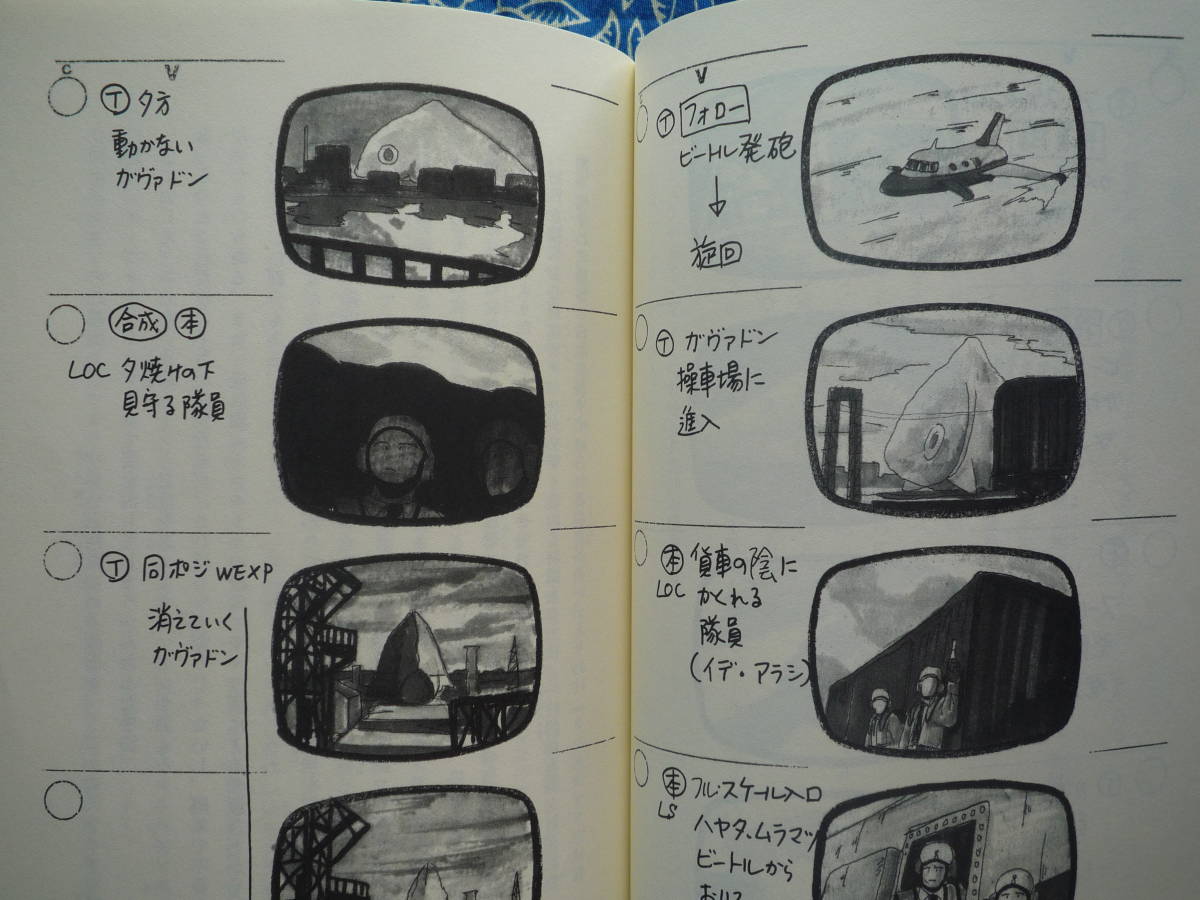 C
Ⓣ 夕方
動かない
ガヴァドン
合成 本
LOC 夕焼けの下
見守る隊員
Ⓣ 同ポジ WEXP
消えていく
ガヴァドン
Ⓣ フォロー
ビートル発砲
↓
旋回
Ⓣ ガヴァドン
操車場に
進入
本 貨車の陰に
LOC かくれる
隊員
(イデ・アラシ)
本 フル・スケール入口
LS ハヤタ、ムラマツ
ビートルから
おりて